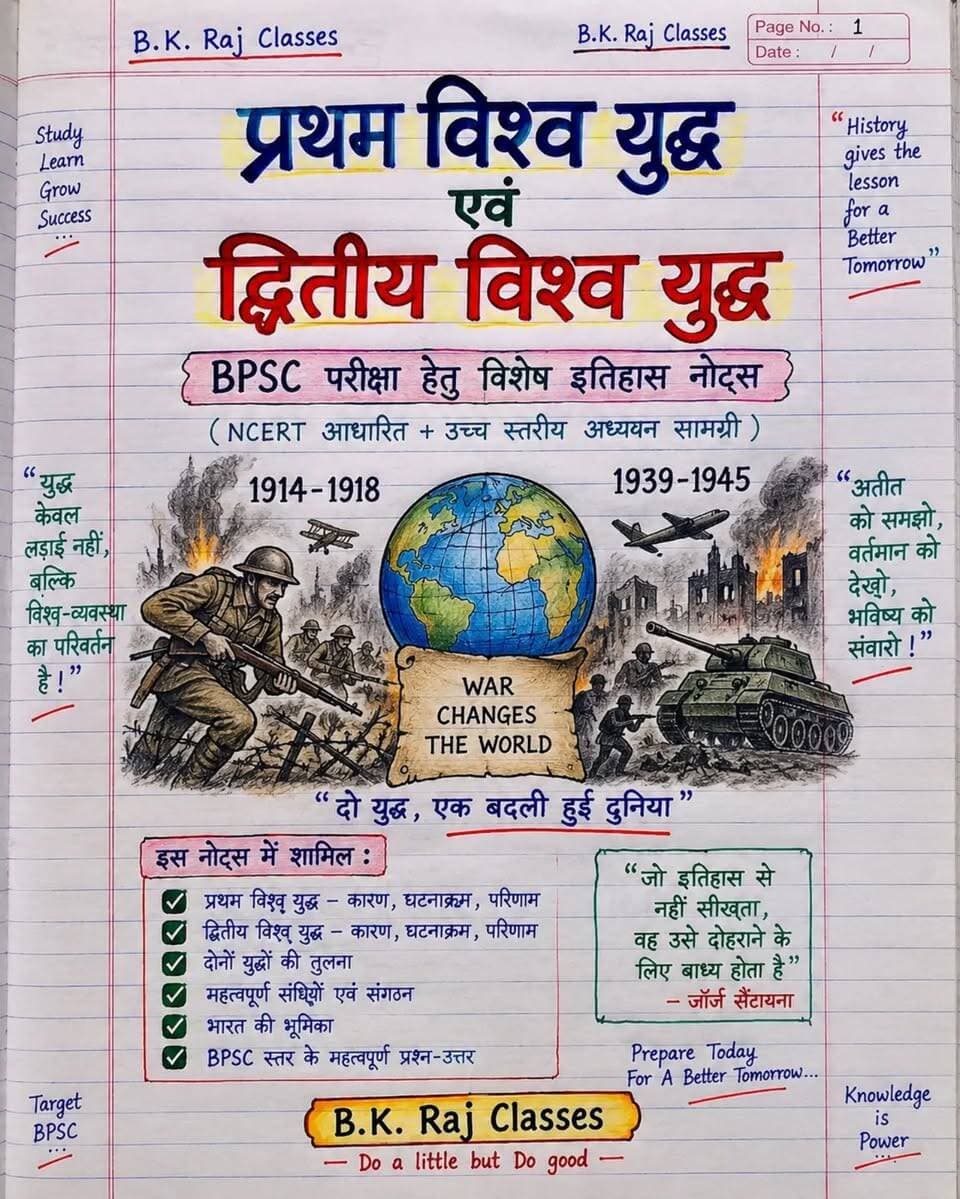 B.K. Raj Classes
B.K. Raj Classes
Page No.: 1
Date : / /
Study
Learn
Grow
Success
...
प्रथम विश्व युद्ध
एवं
द्वितीय विश्व युद्ध
"History
gives the
lesson
for a
Better
Tomorrow"
BPSC परीक्षा हेतु विशेष इतिहास नोट्स
( NCERT आधारित + उच्च स्तरीय अध्यवन सामग्री )
"युद्ध
केवल
लड़ाई नहीं,
बल्कि
विश्व-व्यवस्था
का परिवर्तन
है!"
1914-1918
1939-1945
WAR
CHANGES
THE WORLD
"अतीत
को समझो,
वर्तमान को
देखो,
भविष्य को
संवारो!"
"दो युद्ध, एक बदली हुई दुनिया"
इस नोट्स में शामिल :
प्रथम विश्व युद्ध – कारण, घटनाक्रम, परिणाम
द्वितीय विश्व युद्ध – कारण, घटनाक्रम, परिणाम
दोनों युद्धों की तुलना
महत्वपूर्ण संधियों एवं संगठन
भारत की भूमिका
BPSC स्तर के महत्वपूर्ण प्रश्न-उत्तर
"जो इतिहास से
नहीं सीखता,
वह उसे दोहराने के
लिए बाध्य होता है"
– जॉर्ज सैंटायना
Prepare Today
For A Better Tomorrow...
Target
BPSC
...
B.K. Raj Classes
— Do a little but Do good —
Knowledge
is
Power
...